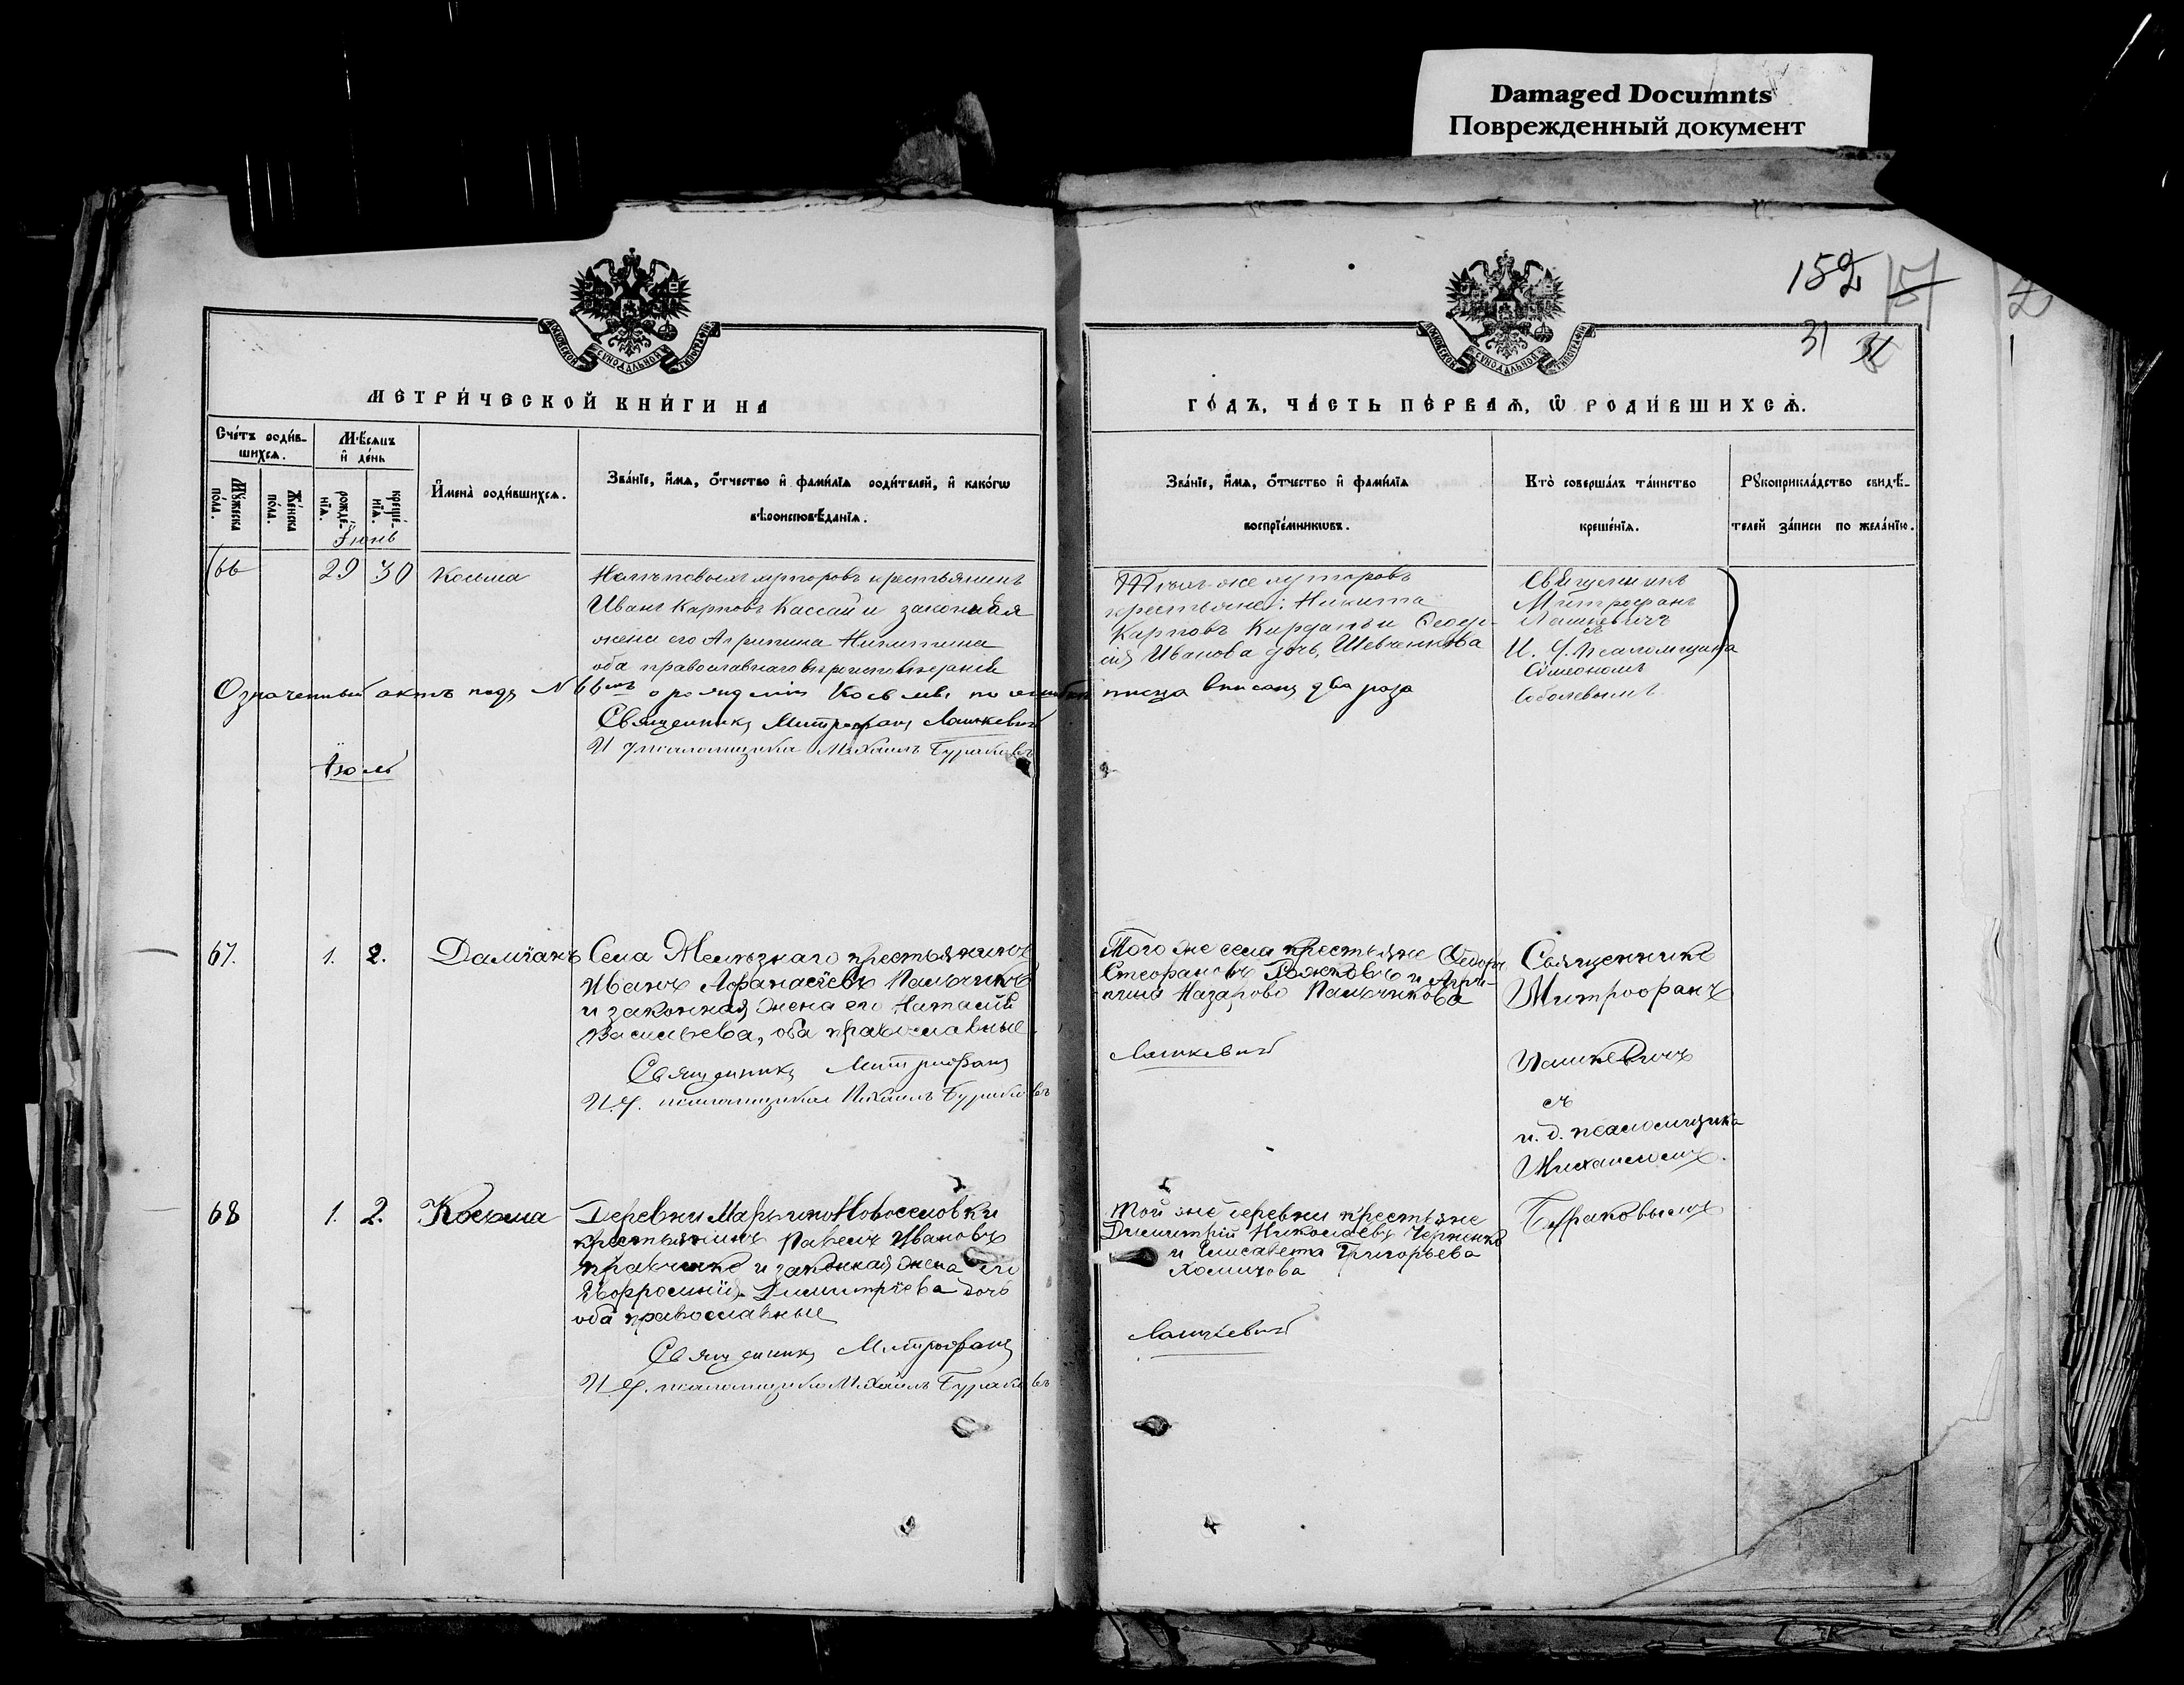 Damaged Documnts
Поврежденный документ
152
31
МОСКОВСКОЙ СУНОДАЛЬНОЙ ТИПОГРАФІИ
МОСКОВСКОЙ СУНОДАЛЬНОЙ ТИПОГРАФІИ
МЕТРИ́ЧЕСКОЙ КНИ́ГИ НА
ГО́ДЪ, ЧА́СТЬ ПЕ́РВАѦ, Ѿ РОДИ́ВШИХСѦ.
Сче́тъ роди́в-
шихсѧ.
Мѣ́сѧцъ
и҆ де́нь
Мꙋ́жеска
по́ла.
Же́нска
по́ла.
рожде́-
нїѧ.
креще́-
нїѧ.
И҆мена̀ роди́вшихсѧ.
Зва́нїе, и҆́мѧ, ѻ҆́тчество и҆ фами́лїѧ роди́телей, и҆ какѡ́гѡ
вѣроисповѣ́данїѧ.
Зва́нїе, и҆́мѧ, ѻ҆́тчество и҆ фами́лїѧ
воспрїе́мникѡвъ.
Кто̀ соверша́лъ та́инство
креще́нїѧ.
Рꙋкоприкла́дство свидѣ́-
телей за́писи по жела́нїю.
Іюнь
66
29
30
Косма
хуторовъ крестьянинъ
Иванъ Карповъ Кассай и законная
жена его Агрипина Никитина
оба православнаго вѣроисповѣданія
Тѣхъ-же хуторовъ
крестьяне: Никита
Карповъ и Феодо-
сія Иванова дочь Шевченкова
Священникъ
Митрофанъ
Лашкевичъ
съ
И. д. псаломщика
Симеономъ
Соболевымъ
Означенный актъ подъ № 66мъ о рожденіи Косьмы по ошибкѣ писца вписанъ два раза
Священникъ Митрофанъ Лашкевичъ
И д псаломщика Михаилъ Бураковъ
Іюль
67.
1.
2.
Даміанъ
Села Желѣзнаго крестьянинъ
Иванъ Афанасіевъ Пальчиковъ
и законная жена его Наталія
Васильева, оба православные.
Священникъ Митрофанъ
И. д. псаломщика Михаилъ Бураковъ
Того же села крестьяне Федоръ
Стефановъ и Агри-
пина Назарова Пальчикова
Лашкевичъ
Священникъ
Митрофанъ
Лашкевичъ
съ
и. д. псаломщика
Михаиломъ
Бураковымъ
68
1.
2.
Косьма
Деревни Марьино Новоселовки
крестьянинъ Павелъ Ивановъ
Кравченко и законная жена его
Евфросинія Димитріева дочь
оба православные
Священникъ Митрофанъ
И. д. псаломщика Михаилъ Бураковъ
Той же деревни крестьяне
Димитрій Николаевъ Черненко
и Елисавета Григорьева
Хомичова
Лашкевичъ